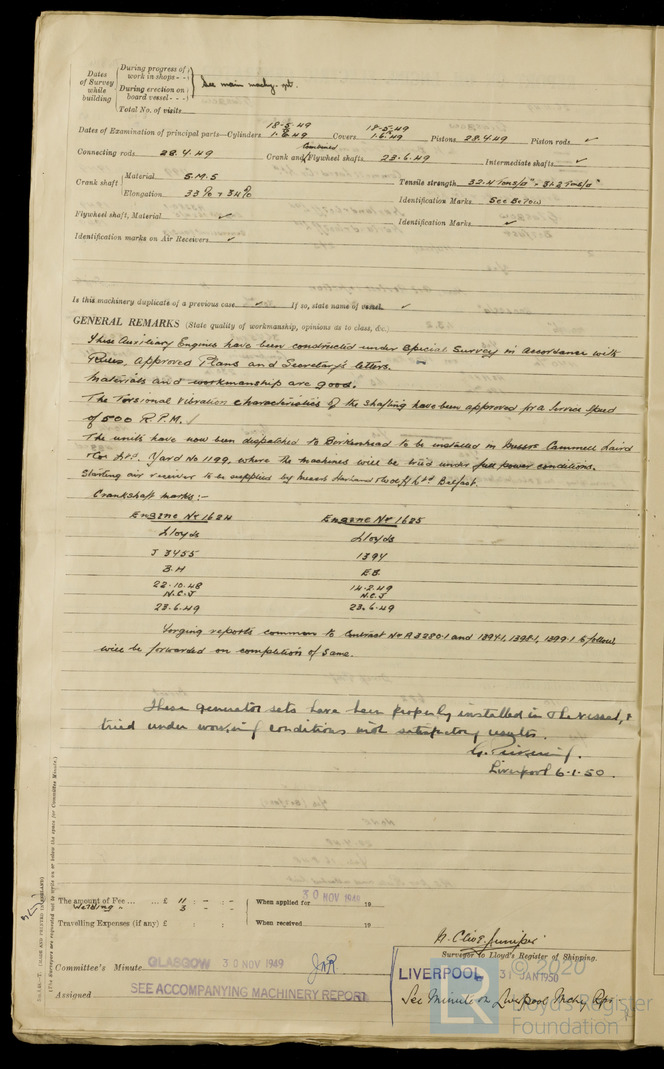 Dates of Survey while building
During progress of work in shops - -
During erection on board vessel - - -
See main machy. rpt.
Total No. of visits
18-5-49 18-5-49
Dates of Examination of principal parts—Cylinders 1.6.49 Covers 1.6.49 Pistons 28.4.49 Piston rods ✓
Connecting rods 28.4.49 Crank and Combined Flywheel shafts 23.6.49 Intermediate shafts ✓
Crank shaft Material S.M.S Tensile strength 32.4 Tons/□" - 31.2 Tons/□"
Elongation 33% & 34% Identification Marks See Below
Flywheel shaft, Material ✓ Identification Marks ✓
Identification marks on Air Receivers ✓
Is this machinery duplicate of a previous case ✓ If so, state name of vessel ✓
GENERAL REMARKS (State quality of workmanship, opinions as to class, &c.)
These Auxiliary Engines have been constructed under Special Survey in accordance with
Rules, approved Plans and Secretary's letters.
Materials and workmanship are good.
The Torsional vibration characteristics of the shafting have been approved for a service speed
of 500 R.P.M. ✓
The units have now been dispatched to Birkenhead to be installed in Messrs Cammell Laird
Yard No 1199, where the machines will be tried under full power conditions.
Starting air receiver to be supplied by Messrs Harland & Wolff Ltd Belfast.
Crankshaft marks:-
Engine No 1624 Engine No 1625
Lloyds Lloyds
J 3455 1394
B.H E.B.
22.10.48 14.2.49
N.C.J N.C.J
23.6.49 23.6.49
Forging reports common to Contract No A3280.1 and 1394.1, 1398.1, 1399.1 to follow
will be forwarded on completion of same.
These generator sets have been properly installed in the vessel, &
tried under working conditions with satisfactory results.
Liverpool 6.1.50.
The amount of Fee ... ... £ 11 : - : -
Welding " 3
When applied for 30 NOV 1949 19
Travelling Expenses (if any) £ : :
When received 19
Surveyor to Lloyd's Register of Shipping.
Committee's Minute GLASGOW 30 NOV 1949
LIVERPOOL 31 JAN 1950
Assigned SEE ACCOMPANYING MACHINERY REPORT
See Minute on Liverpool Mchy Rpt
(The Surveyors are requested not to write on or below the space for Committee Minute.)
© 2020
LR
Lloyd's Register
Foundation